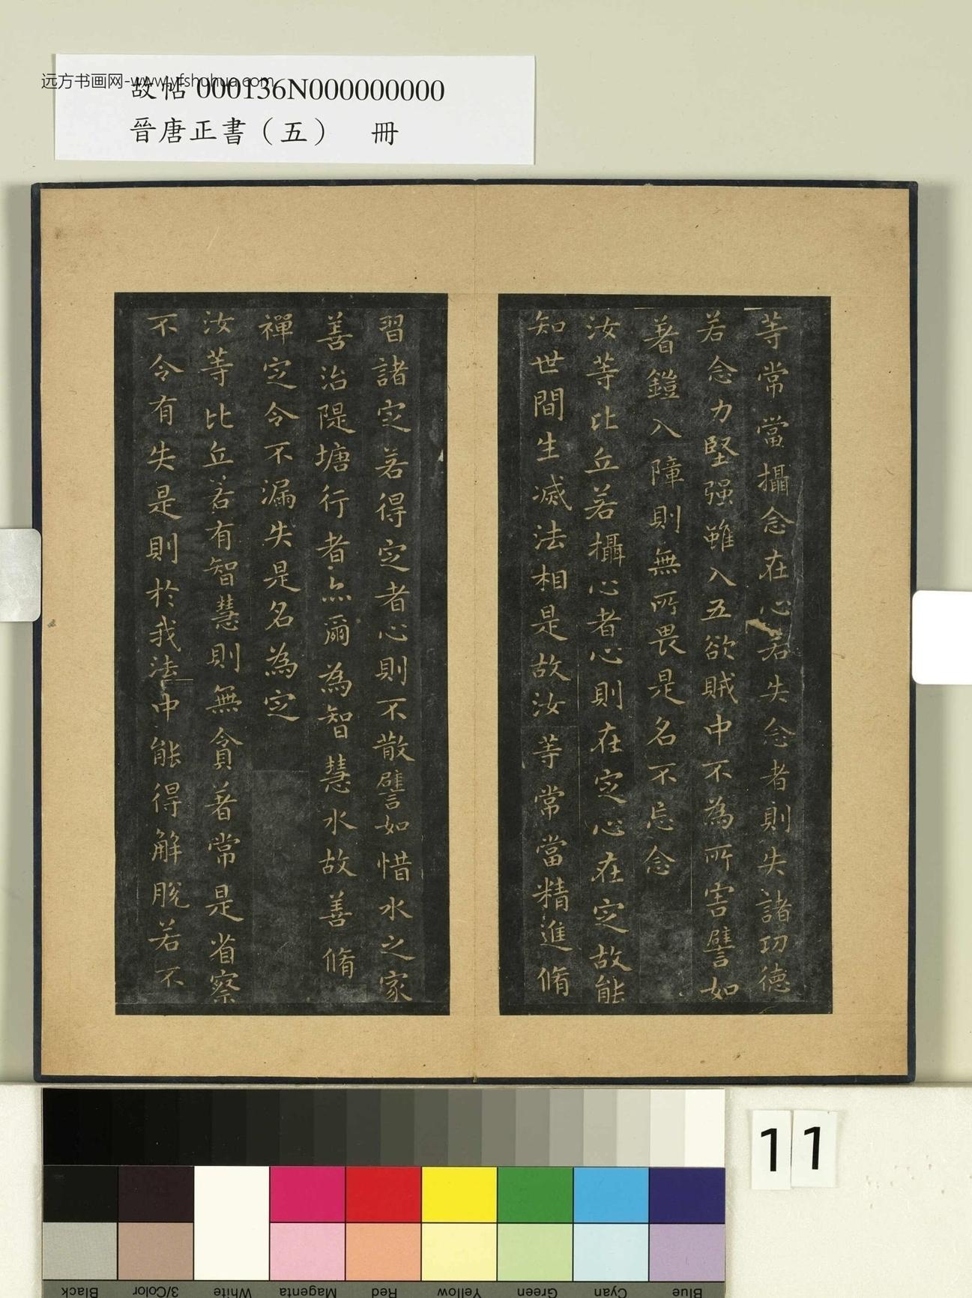 远方书画网-www.yfshuhua.com
故帖 000136N000000000
晉唐正書（五） 冊
等常當攝念在心若失念者則失諸功德
若念力堅强雖入五欲賊中不為所害譬如
著鎧入障則無所畏是名不忘念
汝等比丘若攝心者心則在定心在定故能
知世間生滅法相是故汝等常當精進脩
習諸定若得定者心則不散譬如惜水之家
善治隄塘行者亦爾為智慧水故善脩
禪定令不漏失是名為定
汝等比丘若有智慧則無貪著常是省察
不令有失是則於我法中能得解脫若不
11
Black
3/Color
White
Magenta
Red
Yellow
Green
Cyan
Blue